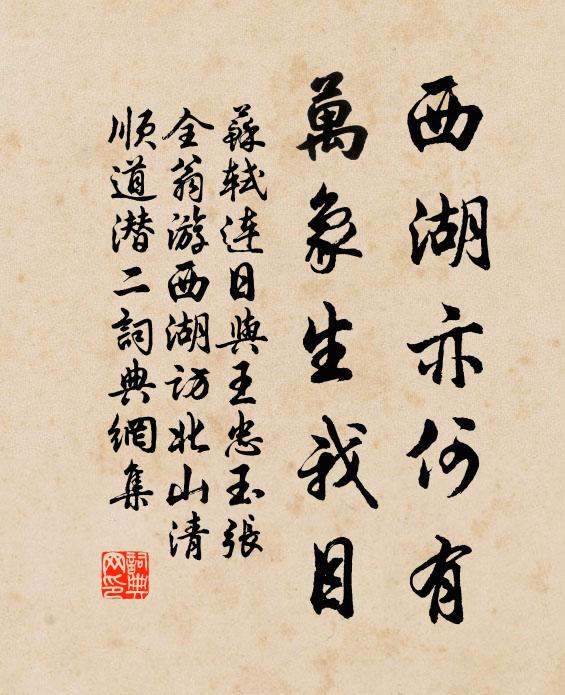 西湖亦何有
萬象生我目
蘇軾连日與王忠玉張
全翁游西湖访北山清
顺道潜二詞典網集
詞典
网印